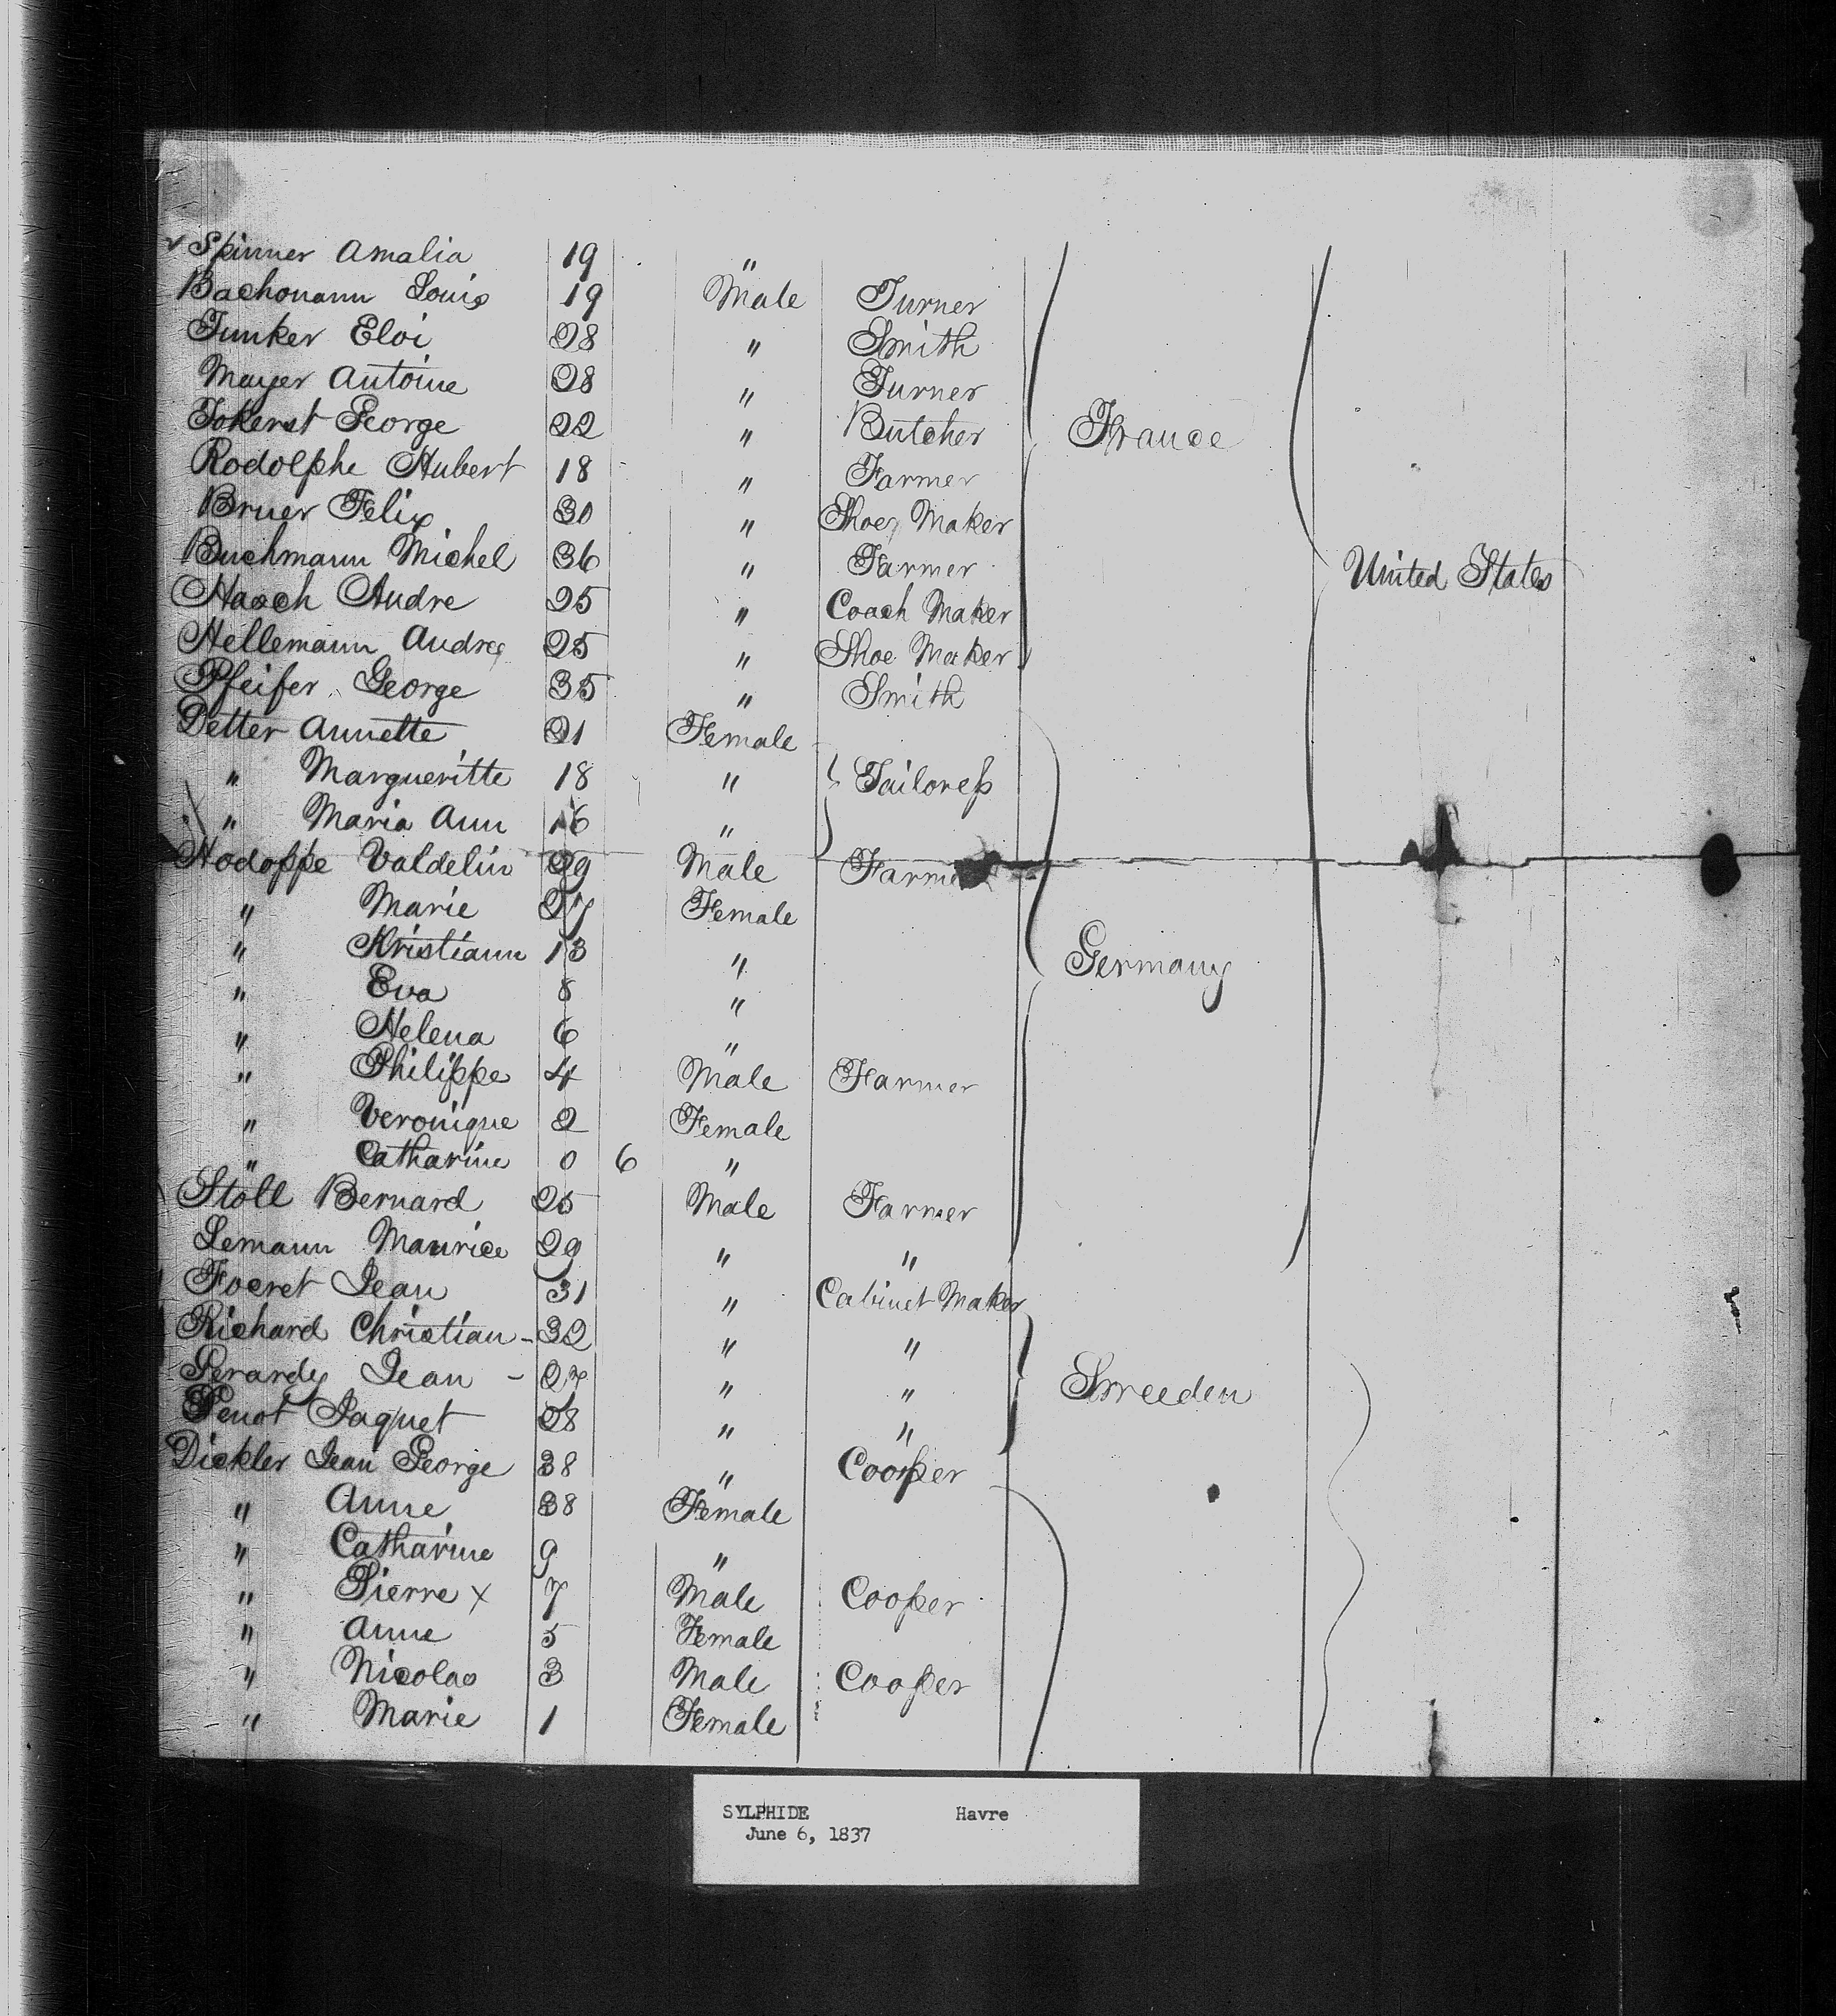 Spinner Amalia 19 "
Bachonann Louis 19 Male Turner
Junker Eloi 28 " Smith
Mayer Antoine 28 " Turner
Jokerst George 22 " Butcher
Rodolphe Hubert 18 " Farmer
Bruer Felix 30 " Shoe Maker
Buchmann Michel 36 " Farmer
Haach Andre 25 " Coach Maker
Hellemann Andre 25 " Shoe Maker
France
United States
Pfeifer George 35 " Smith
Detter Annette 21 Female
" Margueritte 18 " Tailoress
" Maria Ann 16 "
Hodoppe Valdelin 29 Male Farmer
" Marie 27 Female
" Kristiann 13 "
" Eva 8 "
" Helena 6 "
" Philippe 4 Male Farmer
" Veronique 2 Female
" Catharine 0 6 "
Stoll Bernard 25 Male Farmer
Lemann Maurice 29 " "
Germany
Foeret Jean 31 " Cabinet Maker
Richard Christian - 32 " "
Gerardy Jean - 27 " "
Penot Jaquet 28 " "
Sweeden
Dickler Jean George 38 " Cooper
" Anne 38 Female
" Catharine 9 "
" Pierre x 7 Male Cooper
" Anne 5 Female
" Nicolas 3 Male Cooper
" Marie 1 Female
SYLPHIDE Havre
June 6, 1837